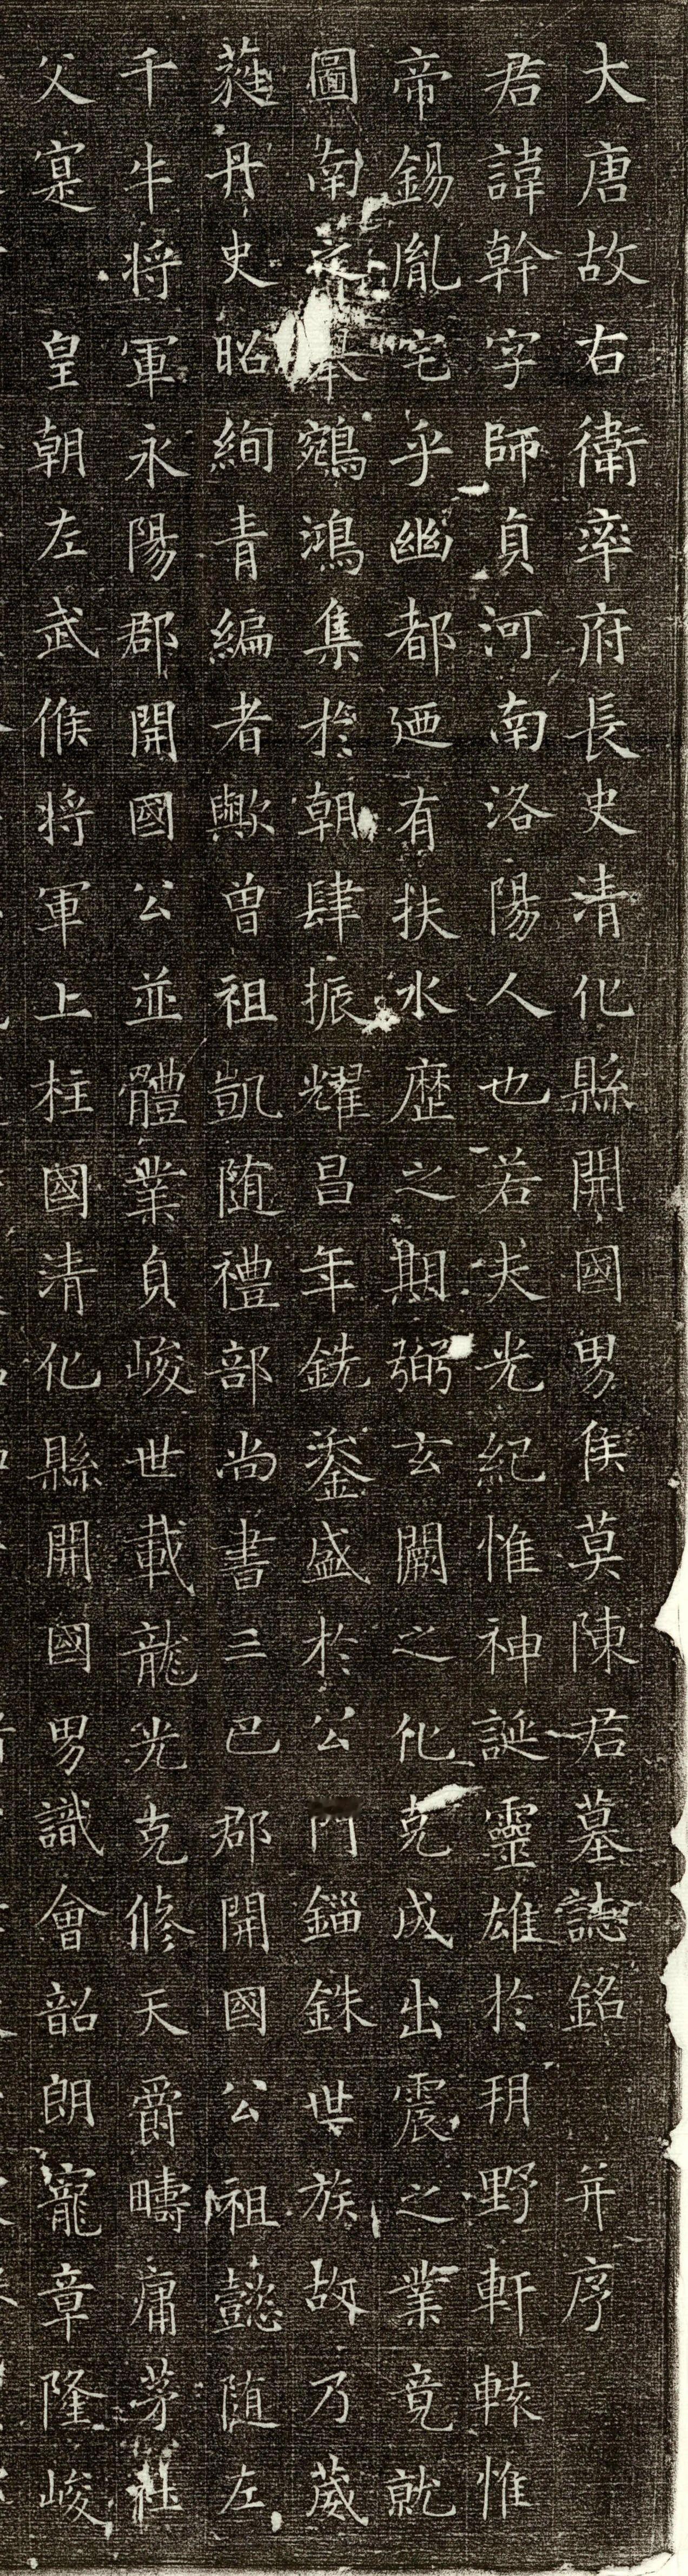 大唐故右衛率府長史清化縣開國男侯莫陳君墓誌銘 并序
君諱幹字師貞河南洛陽人也若夫光紀惟神誕靈雄於玥野軒轅惟
帝錫胤宅乎幽都迺有扶水歷之期弼玄闕之化克成出震之業竟就
圖南之舉鵷鴻集於朝肆振耀昌年銑鋈盛於公門錙銖世族故乃葳
蕤丹史昭絢青編者歟曾祖凱随禮部尚書三巴郡開國公祖懿随左
千牛將軍永陽郡開國公並體業貞峻世載龍光克修天爵疇庸茅社
父寔 皇朝左武候將軍上柱國清化縣開國男識會韶朗寵章隆峻